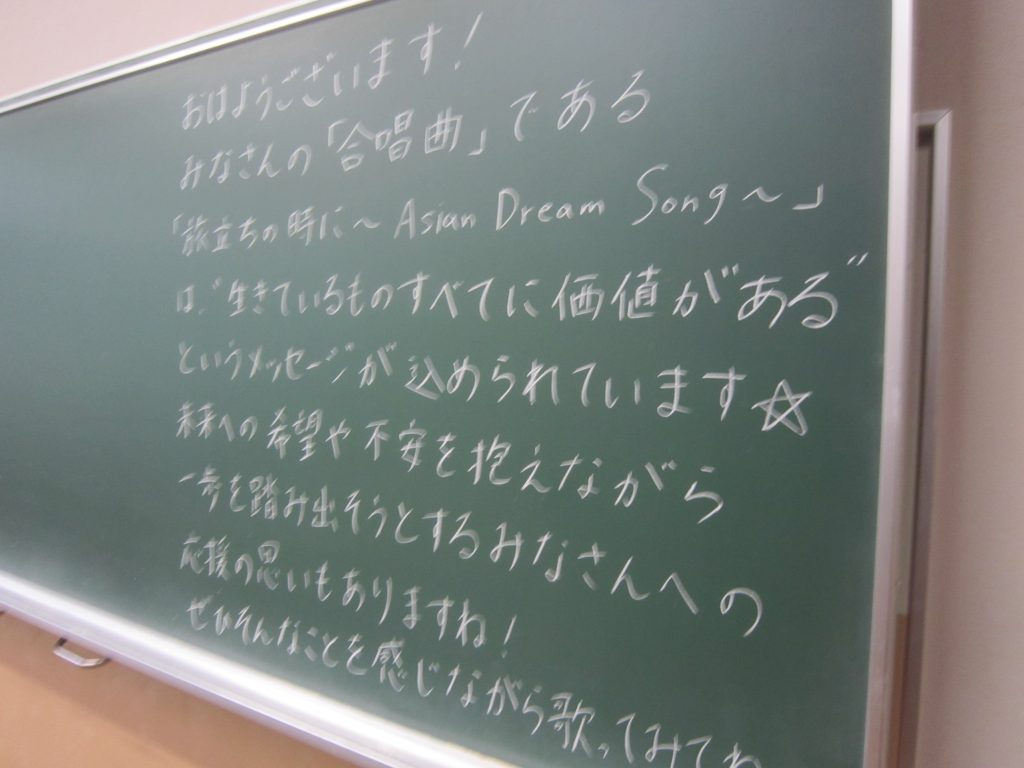 おはようございます!
みなさんの「合唱曲」である
「旅立ちの時に～Asian Dream Song～」
は、"生きているものすべてに価値がある"
というメッセージが込められています☆
未来への希望や不安を抱えながら
一歩を踏み出そうとするみなさんへの
応援の思いもありますね!
ぜひそんなことを感じながら歌ってみてね